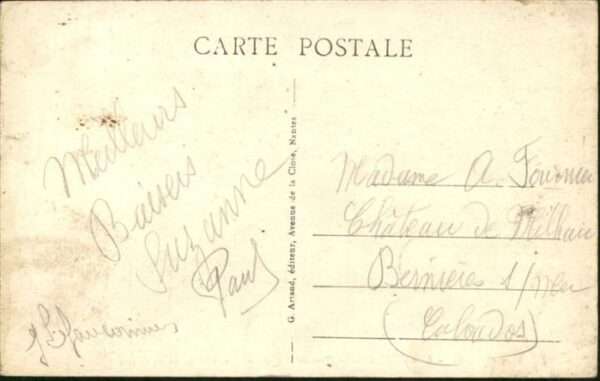 CARTE POSTALE
Meilleurs
Baisers
Suzanne
Paul
G. Artaud, éditeur, Avenue de la Close, Nantes
Madame A. Fournier
Château de
Bernières s/mer
(Calvados)